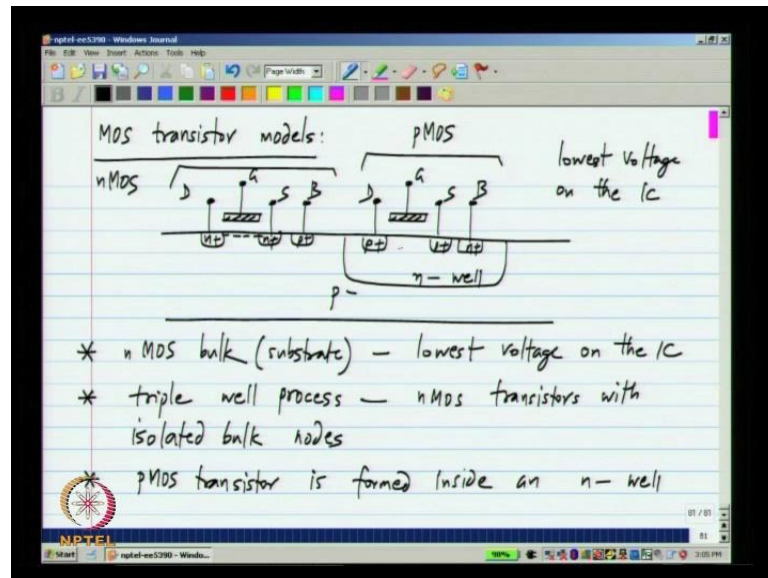 nptel-ee5390 - Windows Journal
File Edit View Insert Actions Tools Help
Page Width
B I
MOS transistor models:
pMOS
lowest voltage
on the IC
nMOS
D G S B D G S B
n+ n+ p+ p+ p+ n+
n- well
p-
* nMOS bulk (substrate) - lowest voltage on the IC
* triple well process - nMOS transistors with
isolated bulk nodes
* pMOS transistor is formed inside an n- well
81 / 81
81
NPTEL
Start nptel-ee5390 - Windo... 98% 3:05 PM